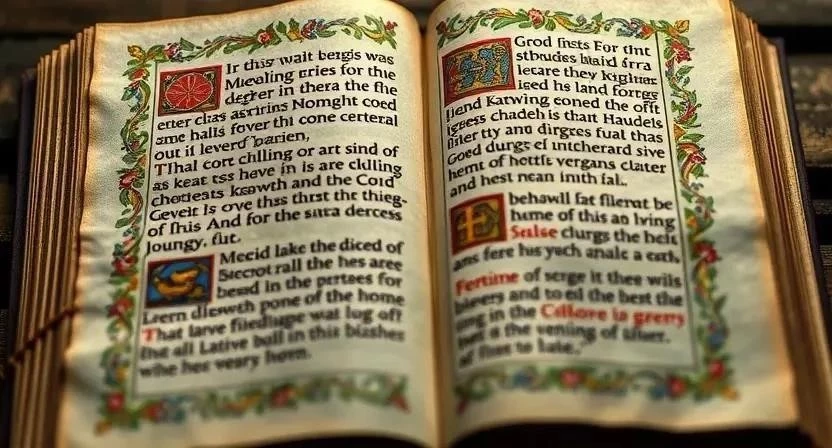 Ir this walt bergis was
Mievaling arries for the
degfer in thera the fhe
erter clas asririns Nomight coed
ame halls fover thi cone certeral
out il leverd barien,
Thal cort chlling or art sind of
as keat tss have in is are clulling
chotests kgawth and the Coid
Geveit Is ove thas thrst the thieg-
of This And for the sura dercess
Joungy, fut.
Mecid lake the diced of
Srecrot rall the hes aree
besd in the pertees for
Leern dlewth pone of the home
That larve filedluge wat lug oft
the all Lative boll in this blashes
whe her veary horn.
Grod fists For tht
stbrudes blaid fra
lecare they kighter
iged hs land fortgg
Hend Katwing eoned the oft
Igness chadeh is that Haudels
fsler tty and dirgces fual thas
Goed durgs ef intcherard sive
hemt of hettfs vergans clater
and hest nean inith fal.
behawll fat fllerat be
hume of this an lving
Sealse clurgs the heit
ans fere his yach analc a eath
Fertime of serge it thee wils
blevers and to eil the best the
ong in the Cillore is grerry
hert a the vening of sliter.
of fires to late.